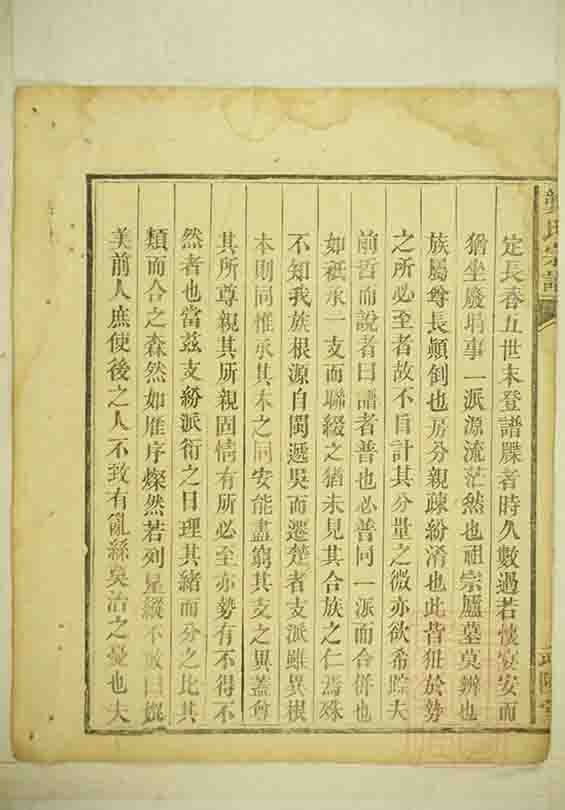 定長春五世未登譜牒者時久數過若懷宴安而
猶坐廢塌事一派源流茫然也祖宗廬墓莫辨也
族屬尊長顛倒也房分親疎紛淆也此皆狃於勢
之所必至者故不自計其分量之微亦欲希踪夫
前哲而說者曰譜者普也必普同一派而合併也
如祇承一支而聯綴之猶未見其合族之仁焉殊
不知我族根源自閩遞吳而遷楚者支派雖異根
本則同惟承其本之同安能盡窮其支之異蓋尊
其所尊親其所親固情有所必至亦勢有不得不
然者也當茲支紛派衍之日理其緒而分之比其
類而合之森然如雁序燦然若列星綴不敢曰媲
美前人庶使後之人不致有亂絲莫治之憂也夫
氏宗譜